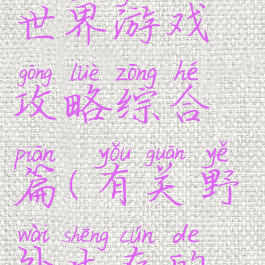 世界游戏
gōng lüè zōng hé
攻略综合
piān yǒu guān yě
篇(有关野
wài shēng cún de
外生存的